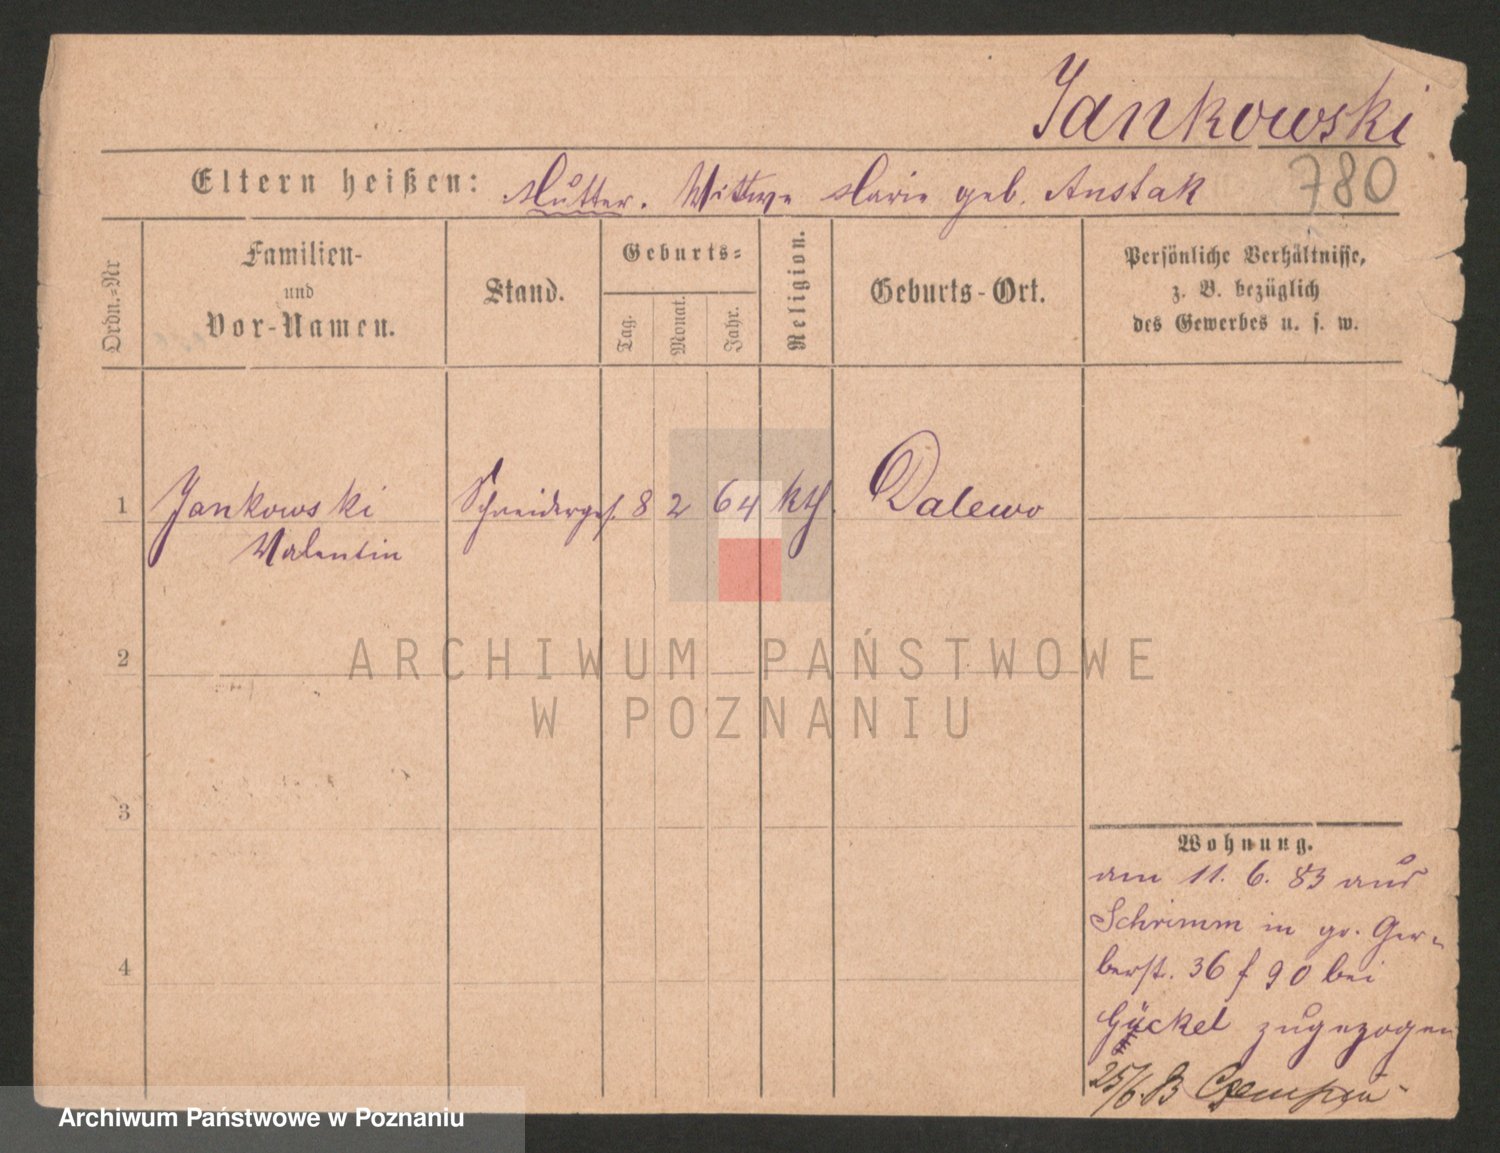 Jankowski
780
Eltern heißen: Mutter. Wittwe Marie geb. Anstak
Ordn.-Nr
Familien-
und
Vor-Namen.
Stand.
Geburts-
Tag.
Monat.
Jahr.
Religion.
Geburts-Ort.
Persönliche Verhältnisse,
z. B. bezüglich
des Gewerbes u. s. w.
1 Jankowski Schneiderges. 8 2 64 kth. Dalewo
Valentin
2
ARCHIWUM PAŃSTWOWE
W POZNANIU
3
4
Wohnung.
am 11. 6. 83 aus
Schrimm in gr. Ger-
berst. 36 f 90 bei
Gückel zugezogen
25/6.83
Archiwum Państwowe w Poznaniu